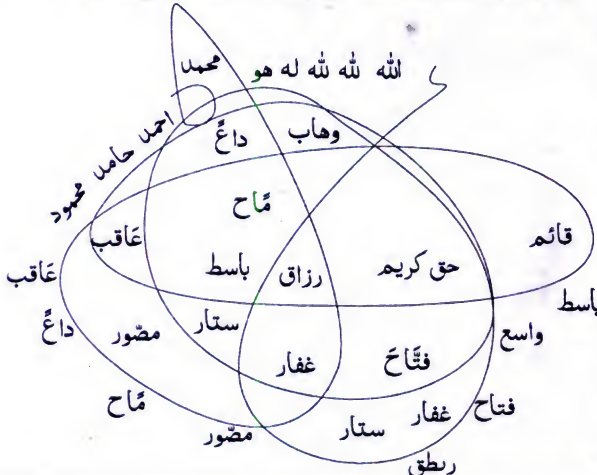 الله لله لله له هو
محمد
احمد حامد محمود
داعٍ
وهاب
مَاح
قائم
عَاقب
باسط
رزاق
حق كريم
عَاقب
باسط
داعٍ
مصّور
ستار
واسع
غفار
فتَّاحَ
مَاح
مصّور
ستار
غفار
فتاح